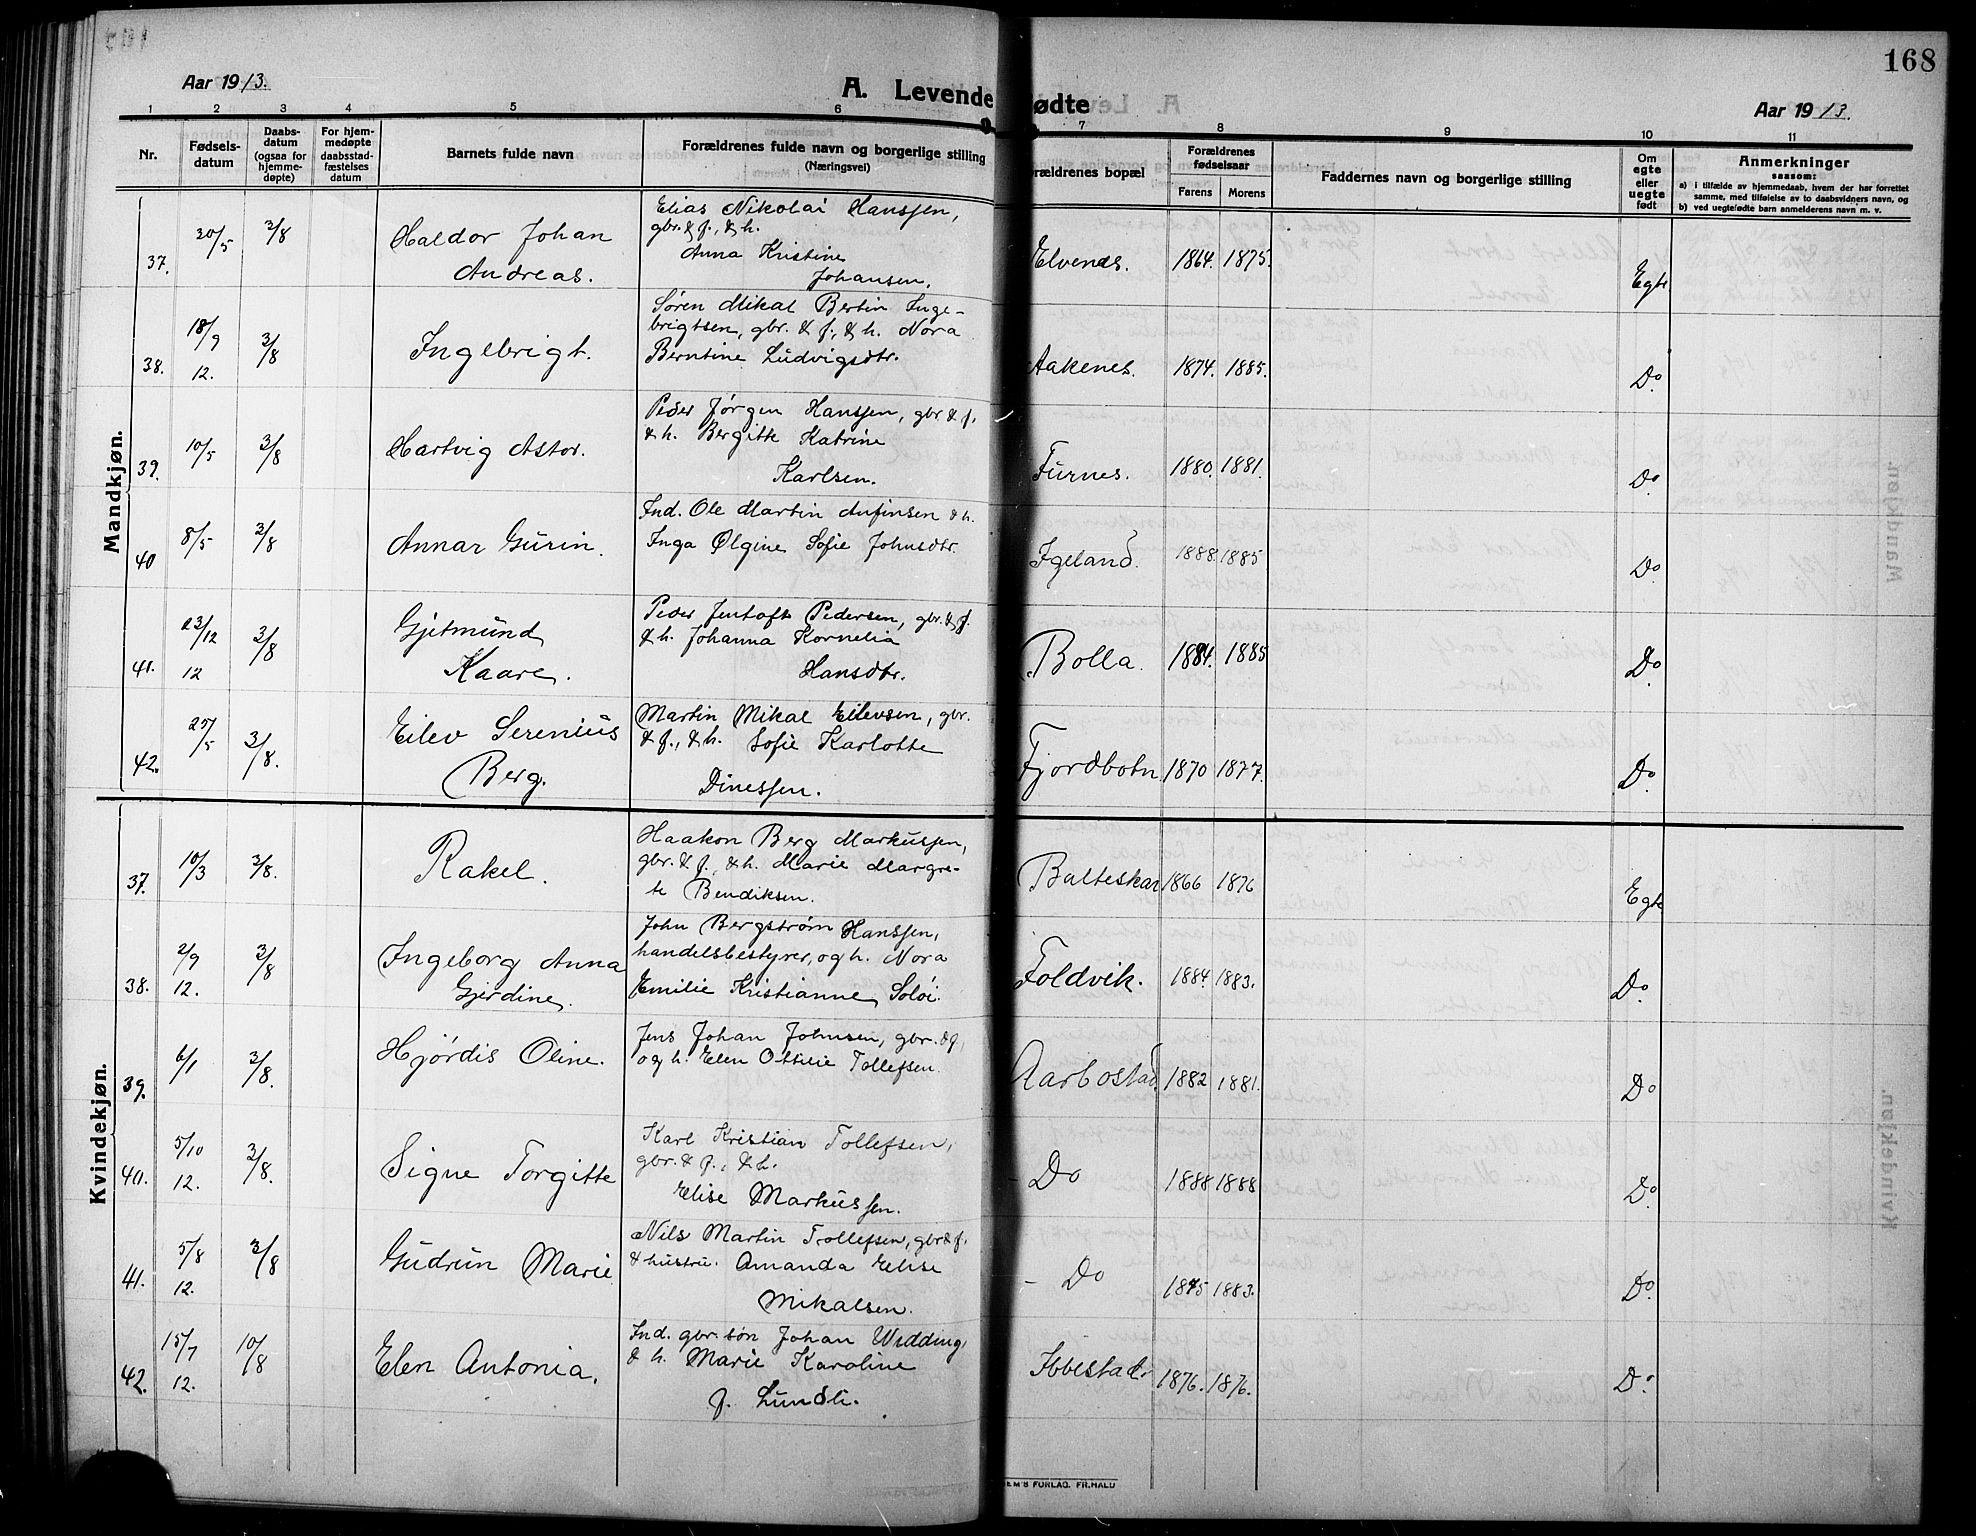 168
Aar 1913.
A. Levende fødte
Aar 1913.
1 2 3 4 5 6 7 8 9 10 11
Nr.
Fødsels-
datum
Daabs-
datum
(ogsaa for
hjemme-
døpte)
For hjem-
medøpte
daabsstad-
fæstelses
datum
Barnets fulde navn
Forældrenes fulde navn og borgerlige stilling
(Næringsvei)
orældrenes bopæl
Forældrenes
fødselsaar
Farens Morens
Faddernes navn og borgerlige stilling
Om
egte
eller
uegte
født
Anmerkninger
saasom:
a) i tilfælde av hjemmedaab, hvem der har forrettet
samme, med tilføielse av to daabsvidners navn, og
b) ved uegtefødte barn anmelderens navn m. v.
Mandkjøn.
37. 30/5 3/8 Haldor Johan
Andreas.
Elias Nikolai Hanssen,
gbr. & f., & h.
Anna Kristine
Johansen.
Elvenes. 1864. 1875. Egte
38. 18/9 12. 3/8 Ingebrigt.
Søren Mikal Bertin Inge-
brigtsen, gbr. & f., & h. Nora
Berntine Ludvigsdtr.
Aakenes. 1874. 1885. Do
39. 10/5 3/8 Hartvig Astor.
Peder Jørgen Hanssen, gbr. & f.
& h. Bergitte Katrine
Karlsen.
Furnes. 1880. 1881. Do
40 8/5 3/8 Annar Gurin.
Ind. Ole Martin Anfinsen & h.
Inga Olgine Sofie Johnsdtr.
Igeland. 1888 1885 Do
41. 23/12 12 3/8 Gjetmund
Kaare.
Peder Jentoft Pedersen, gbr. & f.
& h. Johanna Kornelia
Hansdtr.
Bolla. 1884. 1885 Do
42. 25/5 3/8. Eilev Serenius
Berg.
Martin Mikal Eilevsen, gbr.
& f., & h. Sofie Karlotte
Dinessen.
Fjordbotn 1870 1877. Do
Kvindekjøn.
37. 10/3 3/8. Rakel.
Haakon Berg Markussen,
gbr. & f., & h. Marie Margre-
te Bendiksen.
Balteskar 1866 1876 Egte
38. 2/9 12. 3/8 Ingeborg Anna
Gjerdine.
John Bergstrøm Hanssen,
handelsbestyrer, og h. Nora
Emilie Kristianne Soløi.
Foldvik. 1884. 1883. Do
39. 6/1 3/8. Hjørdis Oline.
Jens Johan Johnsen, gbr. & f.
og h. Elen Ottilie Tollefsen.
Aarbostad. 1882 1881. Do
40. 5/10 12. 3/8. Signe Torgitte
Karl Kristian Tollefsen,
gbr. & f., & h.
Elise Markussen.
- Do 1888 1888 Do
41. 5/8 12. 3/8 Gudrun Marie
Nils Martin Trollefsen, gbr & f.
& hustru. Amanda Elise
Mikalsen.
- Do 1883. Do
42. 15/7 12. 10/8 Elen Antonia.
Ind. gbr. søn Johan Widding
& h. Marie Karoline
f. Lundli.
Ibbestad. 1876. 1876. Do
EM'S FORLAG. FR. HALD